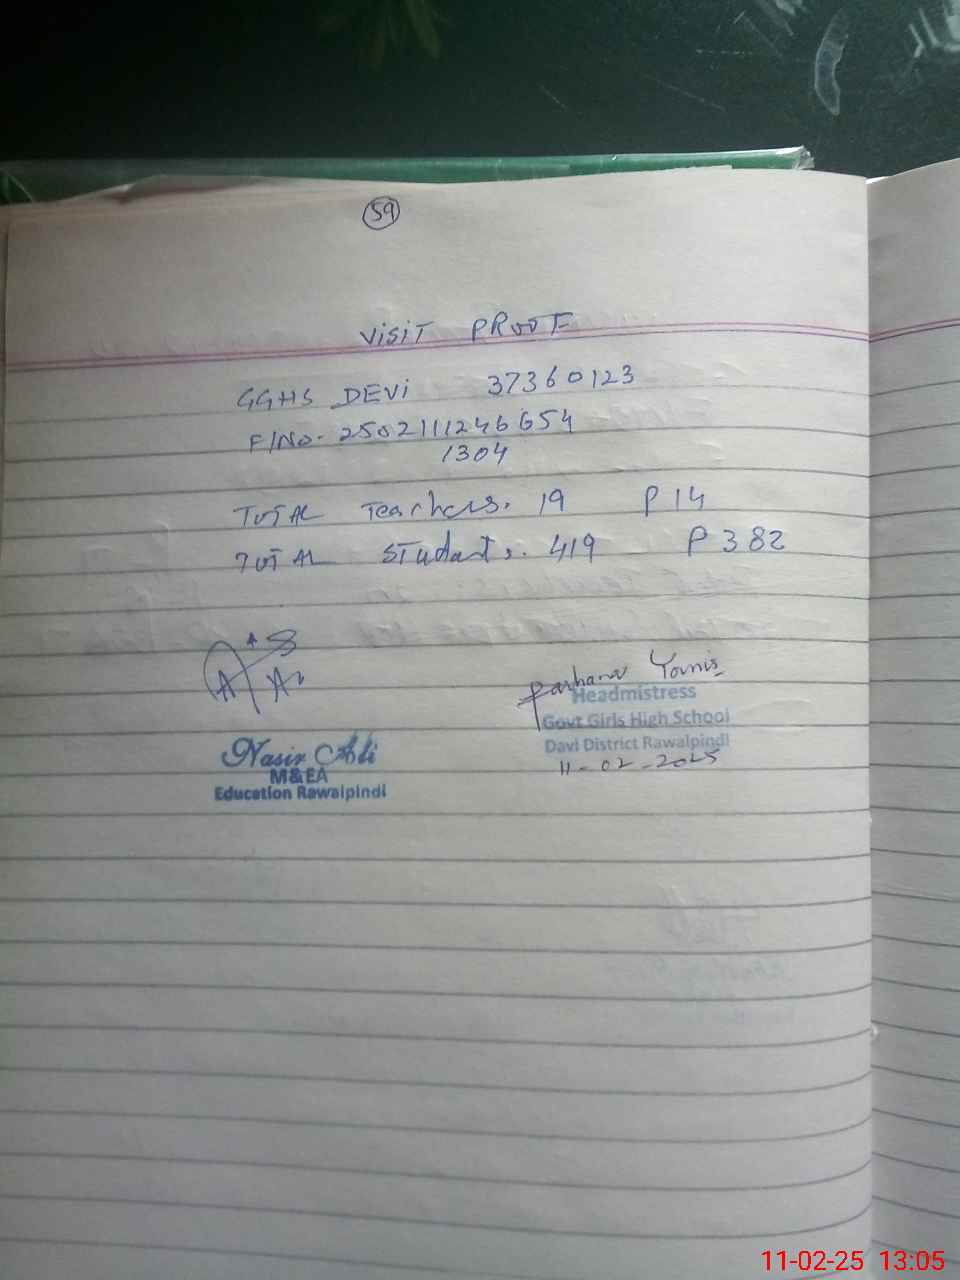 59
VISIT PROOF
GGHS DEVI 37360123
F/No. 2502111246654
1304
TOTAL Teachers. 19 P 14
TOTAL Students. 419 P 382
Farhana Younis
Headmistress
Govt Girls High School
Davi District Rawalpindi
11-02-2025
Nasir Ali
M&EA
Education Rawalpindi
11-02-25 13:05